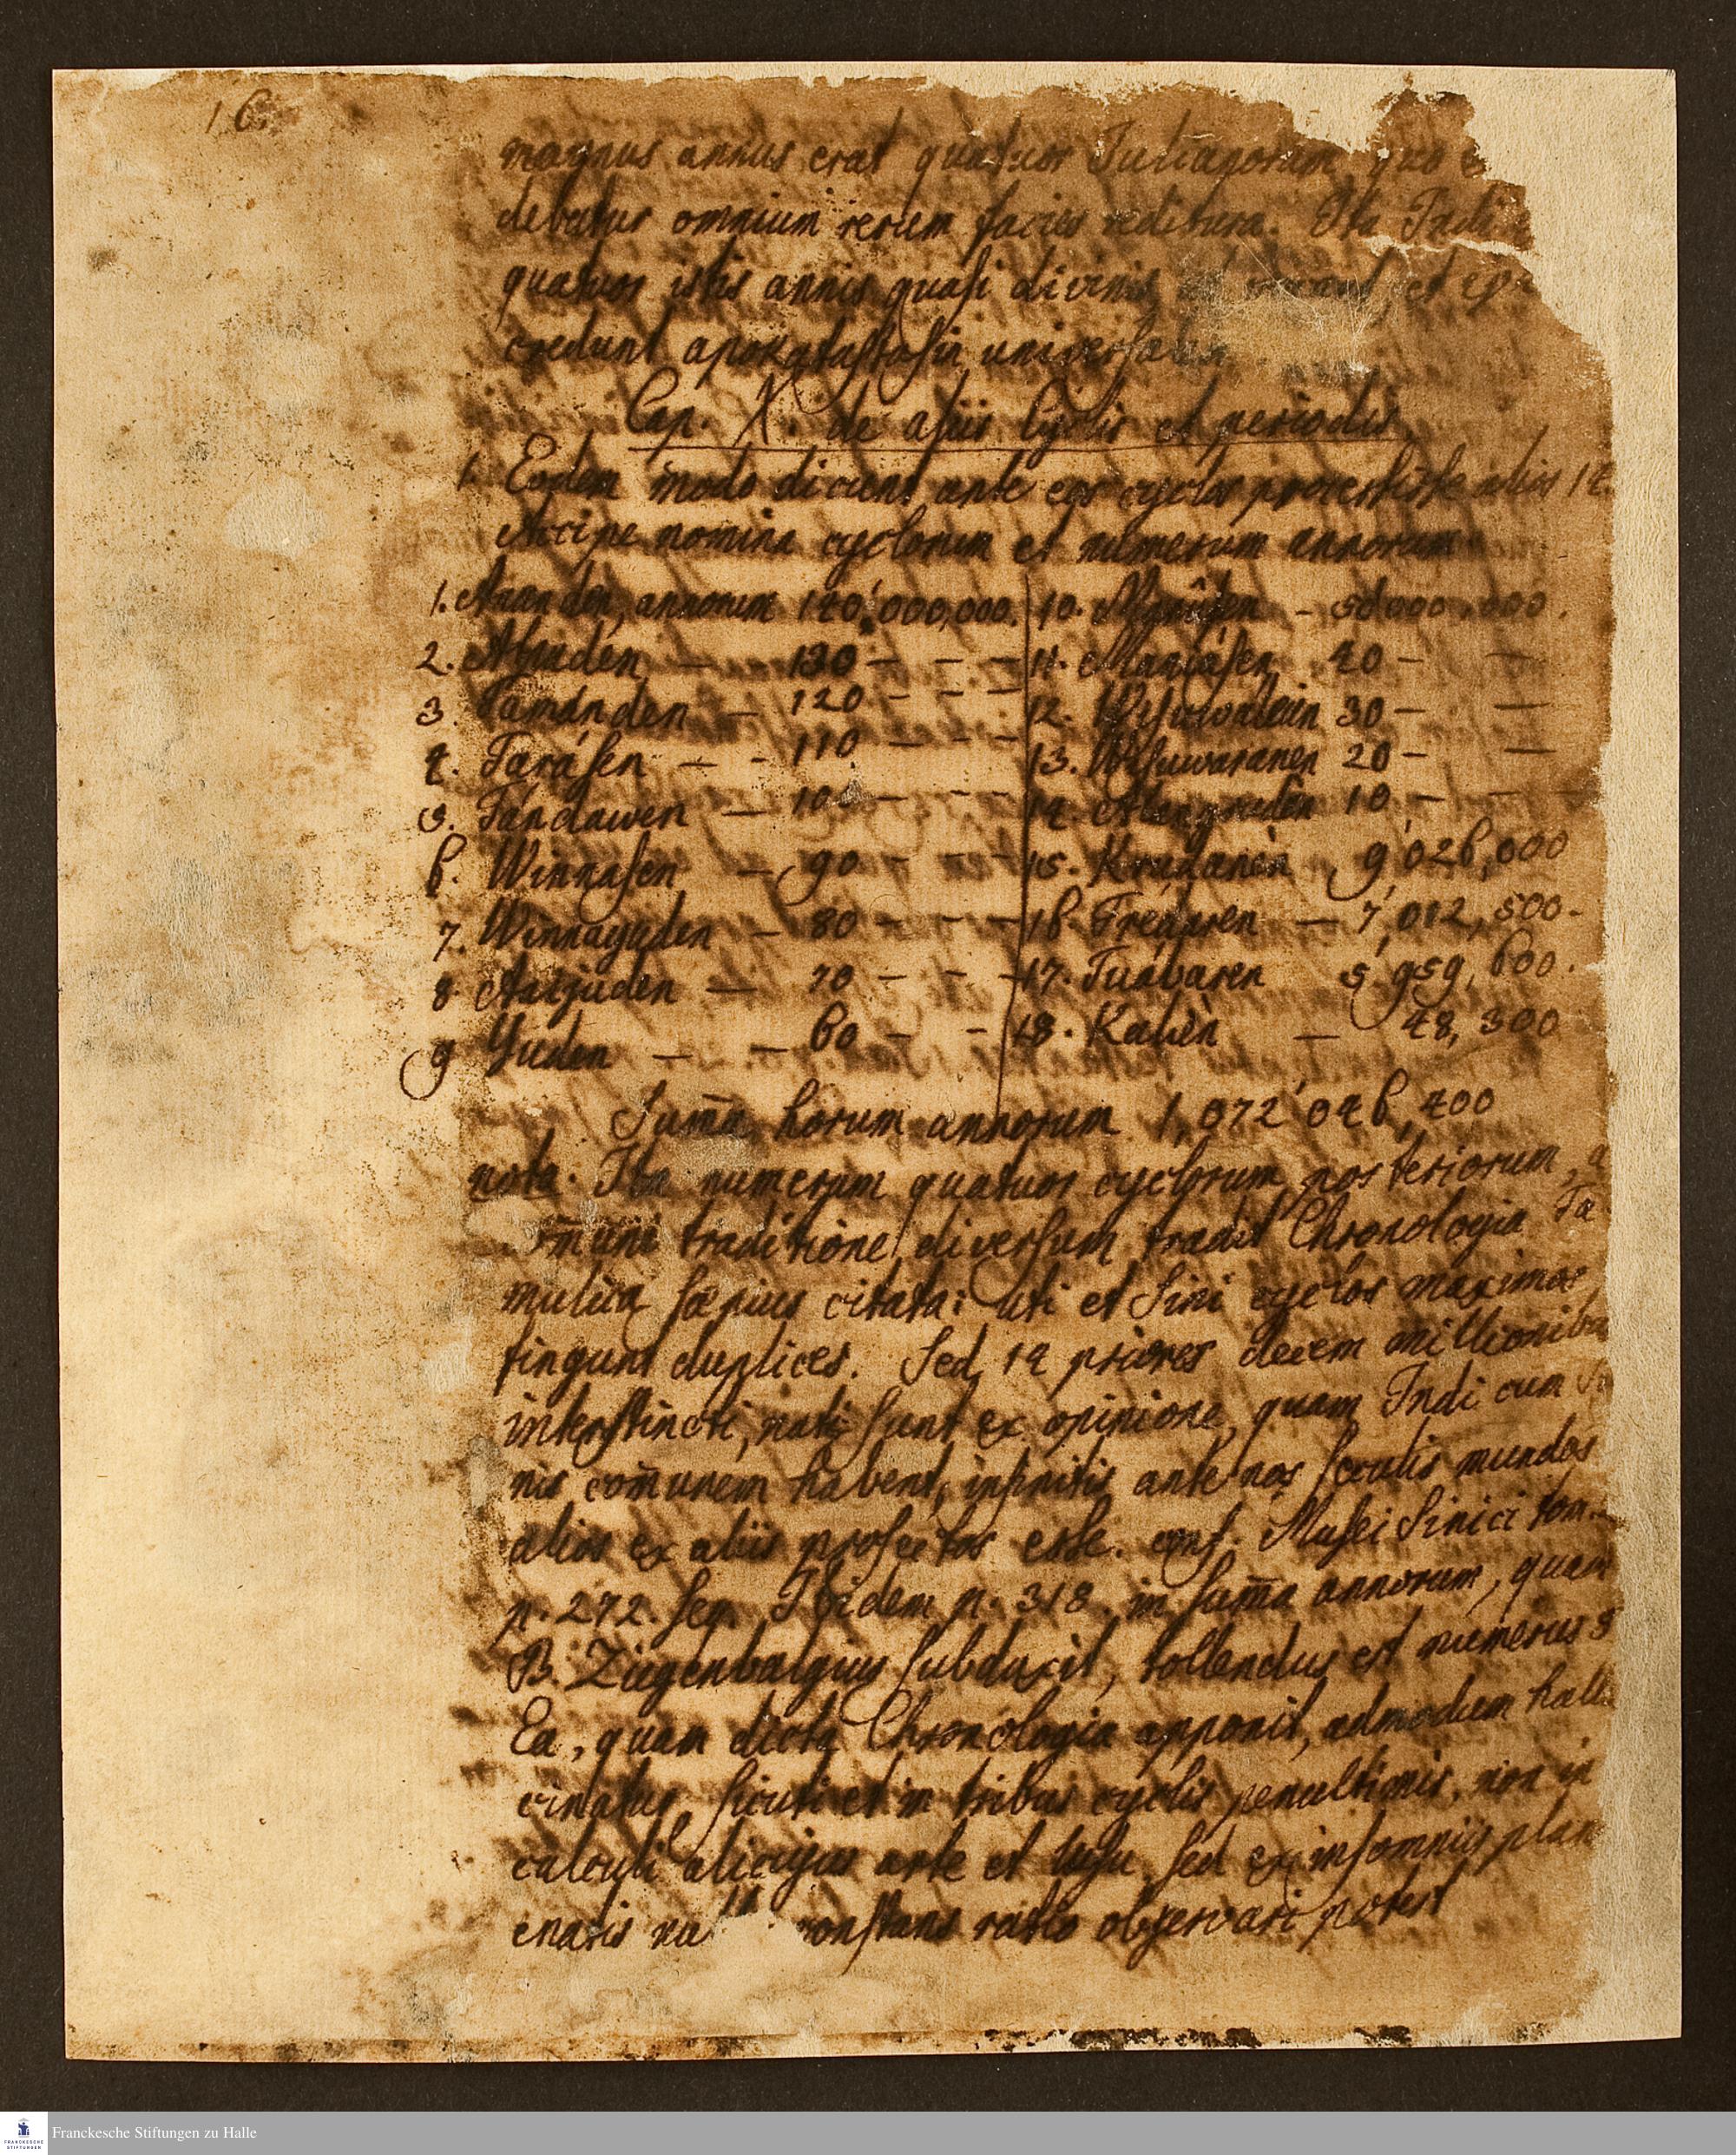 16.
magnus annus erat quatuor
debatur omnium rerum facies reditura. Ita Indi
quatuor istis annis quasi divinis et
credunt apokatastasin universalem
Cap. X. de aliis Cyclis et periodis
1. Eodem modo dicunt ante eos cyclos processisse alios 14
Accipe nomina cyclorum et numerum annorum
1. Anandén, annorum 140'000,000.
2. — 130 - - -
3. — 120 - - -
4. Tarásen — - 110 — - -
5. Tándawen — 100 - - -
6. Winnasen — 90 - - -
7. Winnayuden — 80 - - -
8. Assjuden — 70 - - -
9 Yuden — — 60 - -
10. — 50'000,000.
11. Manuásen 40 - —
12. 30 - —
13. Wisuwaranen 20 - —
14. 10 - —
15. 9'026,000
16. — 7'012,500.
17. Tuábaren 5'959,600.
18. Kalièn — 48,300
Sum̄a horum annorum 1,072'046,400
nota. Ita numerum quatuor cyclorum posteriorum, a
om̄uni traditione diversum tradit Chronologia Ta
mulica sæpius citata: uti et Sini cyclos maximos
fingunt duplices. Sed 14 priores decem millionibu
interstincti, nati sunt ex opinione, quam Indi cum Si
nis com̄unem habent, infinitis ante nos seculis mundos
alios ex aliis profectos esse. conf. Musei Sinici tom.
p. 272. seq. Ibidem p. 318. in sum̄a annorum, quam
B. Ziegenbalgius subduxit, tollendus est numerus 8
Ea, quam dicta Chronologia apponit, admodum hallu
cinatur, sicuti et in tribus cyclis penultimis, non in
calculi alicujus arte et usu, sed ex insomniis plan
enatis nu constans ratio observari potest
Franckesche Stiftungen zu Halle